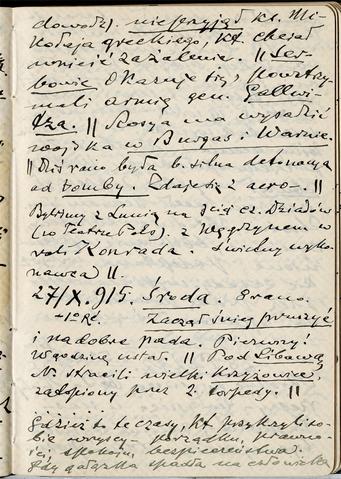 dowódz. nie przyjął ks. Mi-
kołaja greckiego, kt. chciał
wnieść zażalenie. || Ser-
bowie Okazuje się, powstrzy-
mali armię gen. Gallwi-
tza. || Rosya ma wysadzić
wojska w Burgas i Warnie.
|| Dziś rano była b. silna detonacya
od bomby. Zdaje się z aero-. ||
Byliśmy z Lunią na III cz. Dziadów
(w Teatrze Pol.). z Węgrzynem w
roli Konrada. Świetny wyko-
nawca ||.
27/X. 915. Środa. 8 rano.
+1° Ré. Zaczął śnieg prószyć
i na dobre pada. Pierwszy!
W godzinę ustał. || Pod Libawą
N. stracili wielki krzyżowiec,
zatopiony przez 2. torpedy. ||
. . . . . . . .
Gdzież to te czasy, kt. przykrzyli so-
bie wszyscy – porządku, prawno-
ści, spokoju, bezpieczeństwa.
Gdy gałązka spadła na człowieka